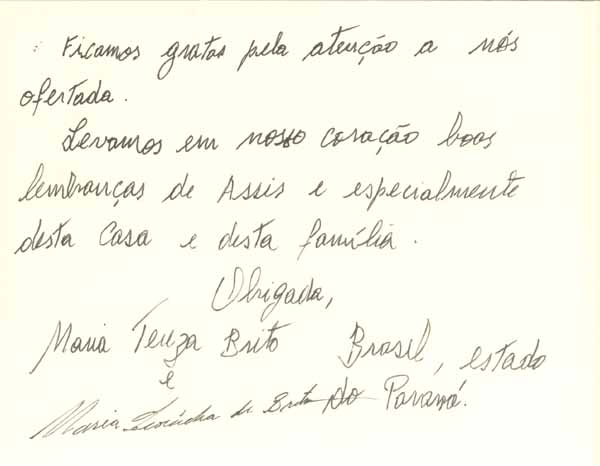 Ficamos gratas pela atenção a nós
ofertada.
Levamos em nosso coração boas
lembranças de Assis e especialmente
desta Casa e desta família.
Obrigada,
Maria Tereza Brito Brasil, estado
e
Maria de Brito do Paraná.